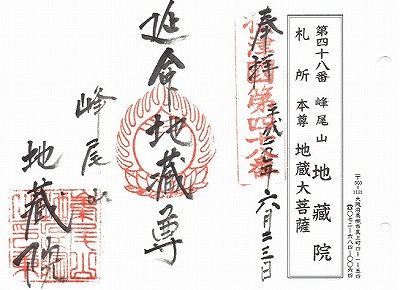 第四十八番 峰尾山 地蔵院
札所 本尊 地蔵大菩薩
奉拝
平成二〇年六月二三日
摂津国第四十八番
延命地蔵尊
峰尾山
地蔵院